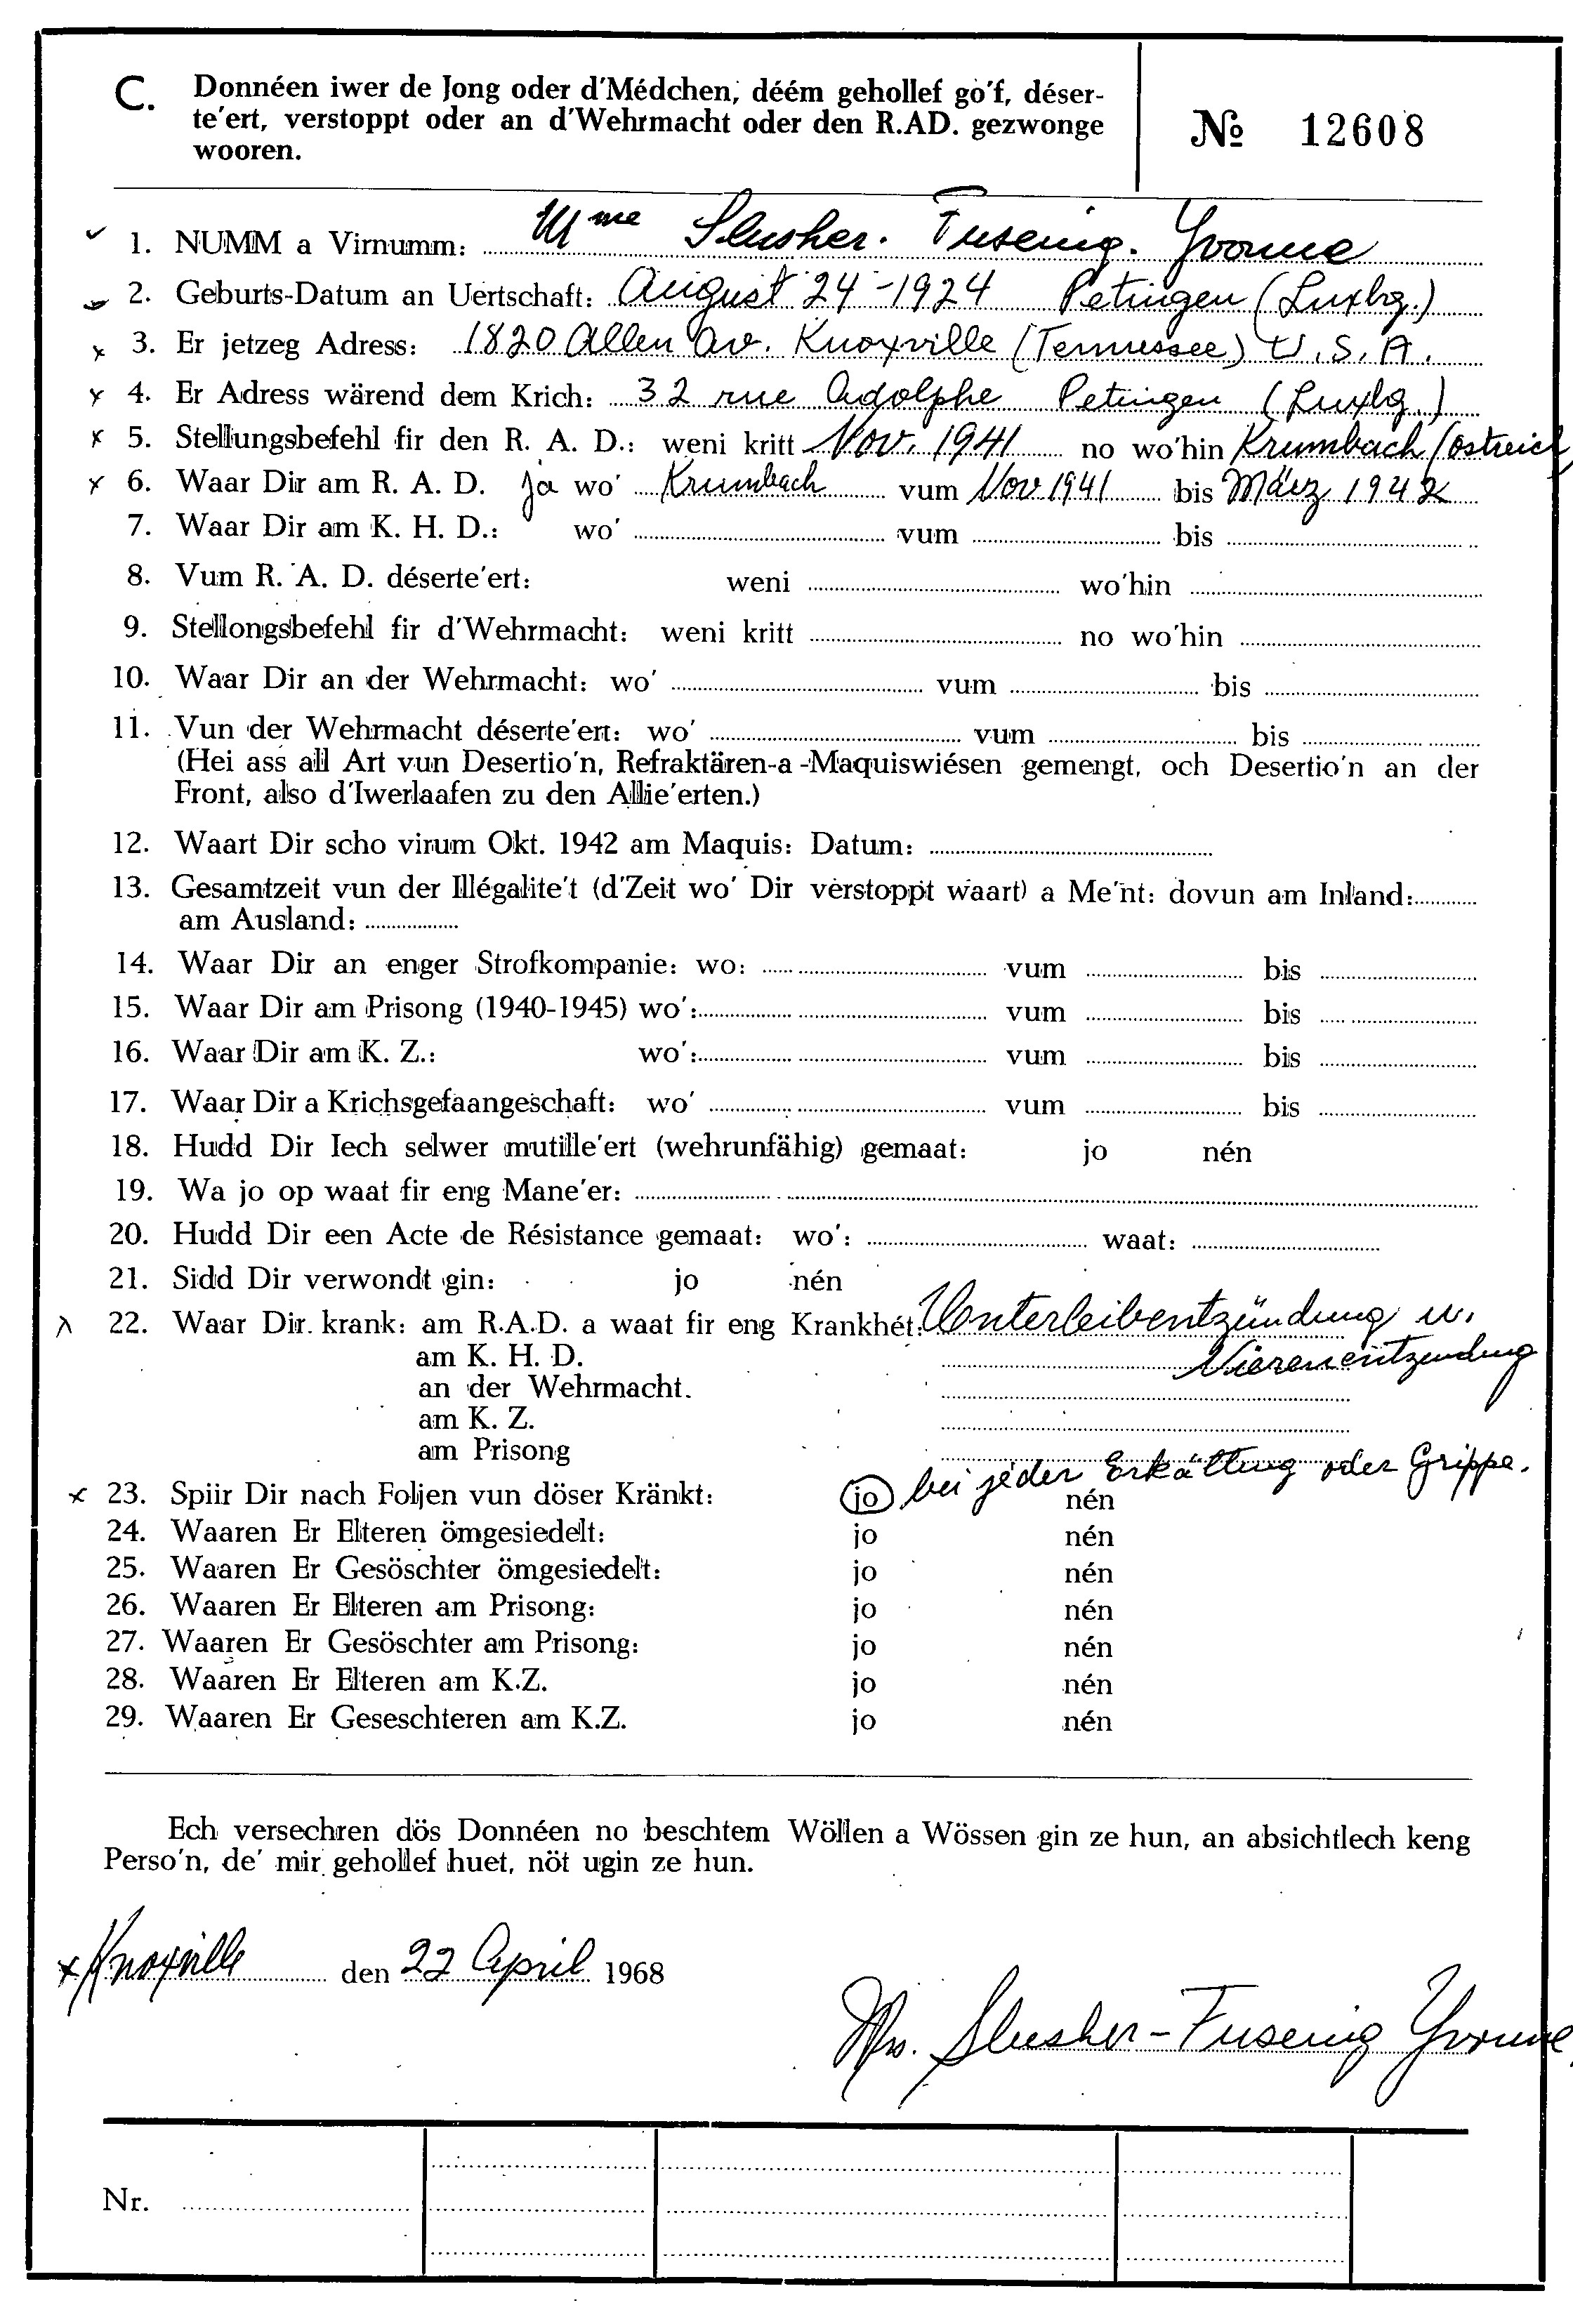 C. Donnéen iwer de Jong oder d'Médchen, déém gehollef go'f, déser-
te'ert, verstoppt oder an d'Wehrmacht oder den R.AD. gezwonge
wooren.
№ 12608
1. NUMM a Virnumm: Mme Slusher. Fusenig. Yvonne
2. Geburts-Datum an Uertschaft: August 24-1924 Petingen (Luxbg.)
3. Er jetzeg Adress: 1820 Allen Av. Knoxville (Tennessee) U.S.A.
4. Er Adress wärend dem Krich: 32 rue Adolphe Petingen (Luxbg.)
5. Stellungsbefehl fir den R. A. D.: weni kritt Nov. 1941 no wo'hin Krumbach (Ostreich)
6. Waar Dir am R. A. D. Ja wo' Krumbach vum Nov 1941 bis März 1942
7. Waar Dir am K. H. D.: wo' vum bis
8. Vum R. A. D. déserte'ert: weni wo'hin
9. Stellongsbefehl fir d'Wehrmacht: weni kritt no wo'hin
10. Waar Dir an der Wehrmacht: wo' vum bis
11. Vun der Wehrmacht déserte'ert: wo' vum bis
(Hei ass all Art vun Desertio'n, Refraktären-a-Maquiswiésen gemengt, och Desertio'n an der
Front, also d'Iwerlaafen zu den Allie'erten.)
12. Waart Dir scho virum Okt. 1942 am Maquis: Datum:
13. Gesamtzeit vun der Illégalite't (d'Zeit wo' Dir verstoppt waart) a Me'nt: dovun am Inland:
am Ausland:
14. Waar Dir an enger Strofkompanie: wo: vum bis
15. Waar Dir am Prisong (1940-1945) wo': vum bis
16. Waar Dir am K. Z.: wo': vum bis
17. Waar Dir a Krichsgefaangeschaft: wo' vum bis
18. Hudd Dir Iech selwer mutille'ert (wehrunfähig) gemaat: jo nén
19. Wa jo op waat fir eng Mane'er:
20. Hudd Dir een Acte de Résistance gemaat: wo': waat:
21. Sidd Dir verwondt gin: jo nén
22. Waar Dir krank: am R.A.D. a waat fir eng Krankhét: Unterleibentzündung u.
am K. H. D. Nierenentzendung
an der Wehrmacht.
am K. Z.
am Prisong
23. Spiir Dir nach Foljen vun döser Kränkt: jo bei jeder Erkältung oder Grippe. nén
24. Waaren Er Elteren ömgesiedelt: jo nén
25. Waaren Er Gesöschter ömgesiedelt: jo nén
26. Waaren Er Elteren am Prisong: jo nén
27. Waaren Er Gesöschter am Prisong: jo nén
28. Waaren Er Elteren am K.Z. jo nén
29. Waaren Er Geseschteren am K.Z. jo nén
Ech versechren dös Donnéen no beschtem Wöllen a Wössen gin ze hun, an absichtlech keng
Perso'n, de' mir gehollef huet, nöt ugin ze hun.
x Knoxville den 22 April 1968
Mrs. Slusher-Fusenig Yvonne.
Nr.